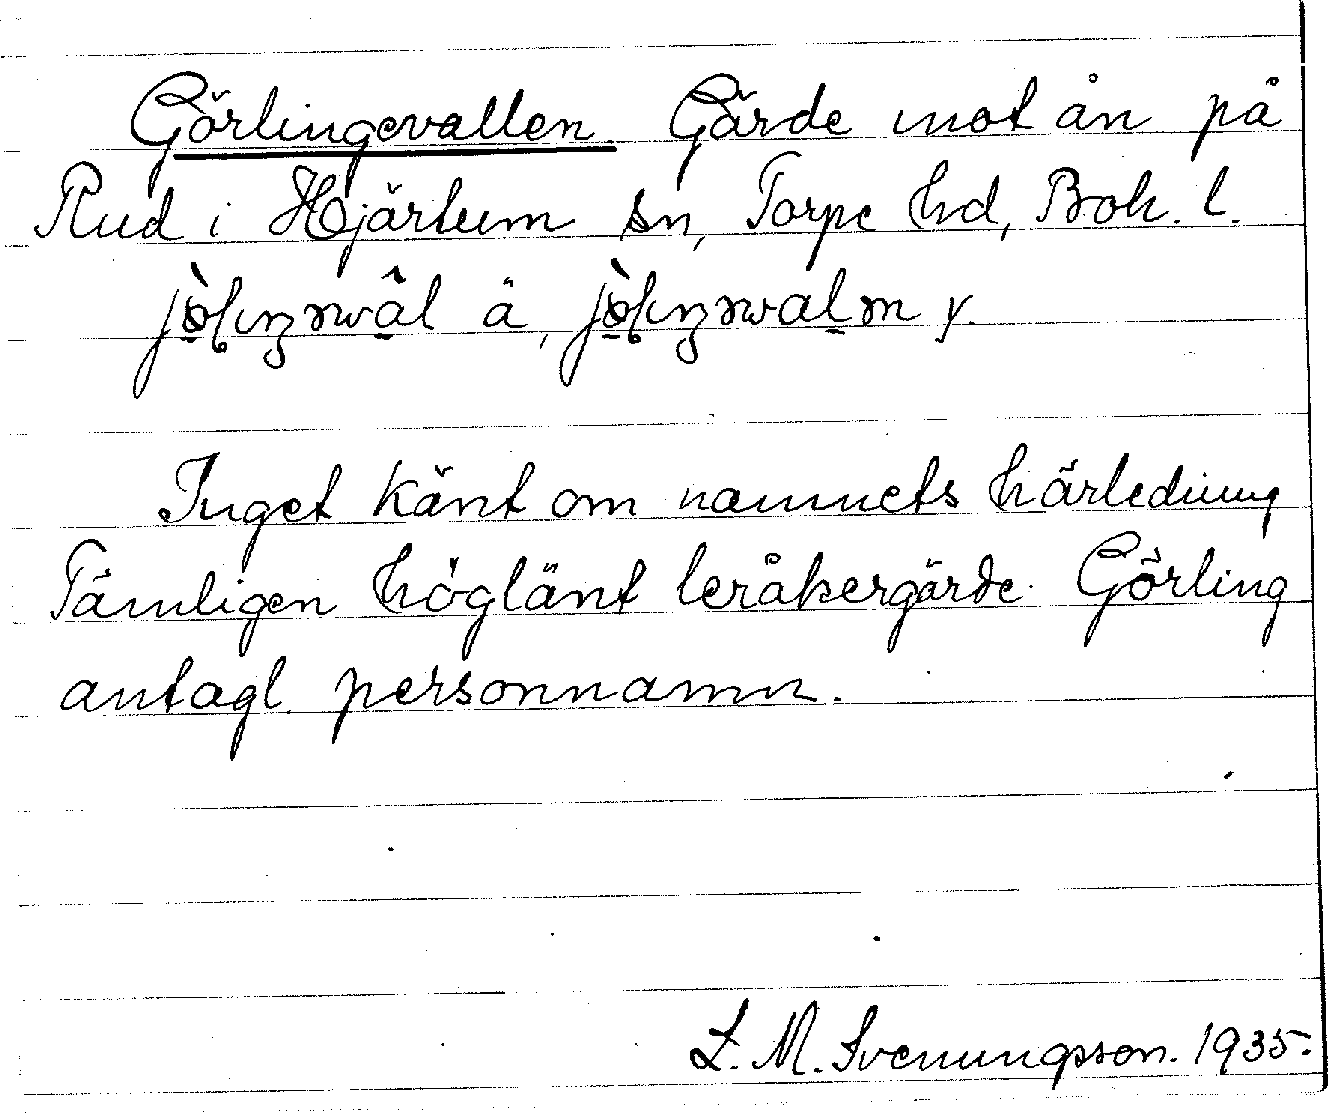 Görlingevallen Gärde mot ån på
Rud i Hjärtum sn, Torpe hd, Boh. l.
å, y.
Inget känt om namnets härledning
Tämligen höglänt leråkergärde. Görling
antagl. personnamn.
L. M. Svenungsson. 1935.